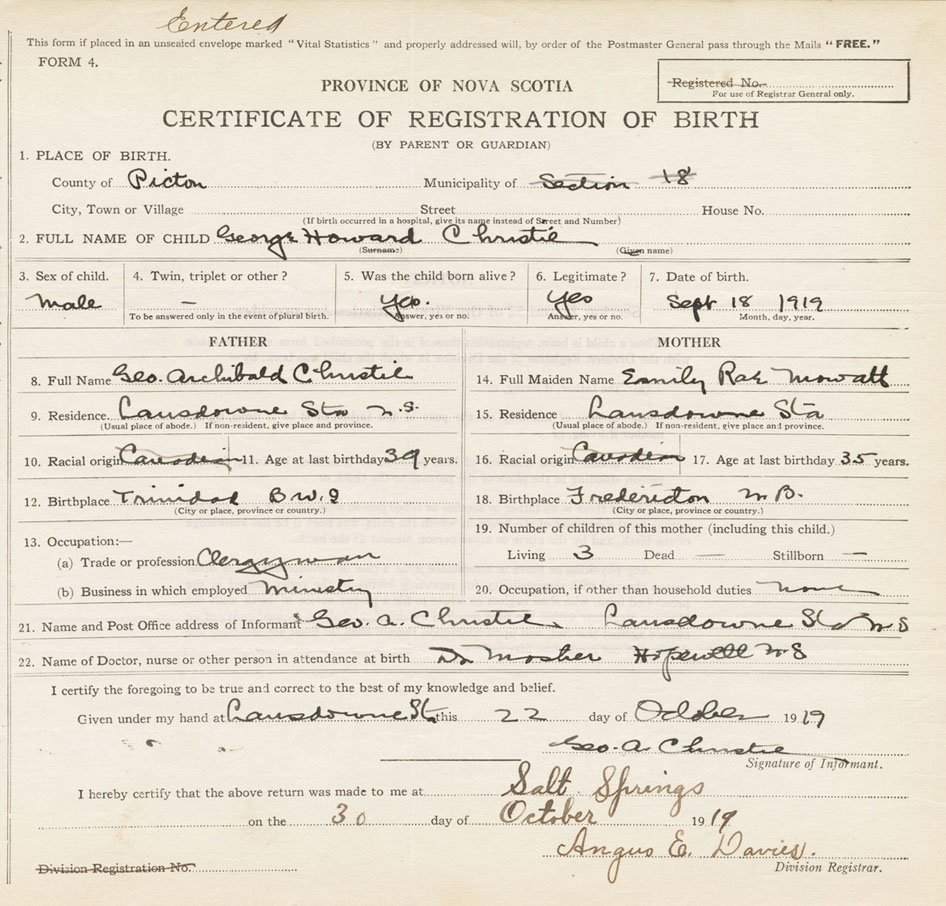 Entered
This form if placed in an unsealed envelope marked "Vital Statistics" and properly addressed will, by order of the Postmaster General pass through the Mails "FREE."
FORM 4.
Registered No.
For use of Registrar General only.
PROVINCE OF NOVA SCOTIA
CERTIFICATE OF REGISTRATION OF BIRTH
(BY PARENT OR GUARDIAN)
1. PLACE OF BIRTH.
County of Picton Municipality of Section 18
City, Town or Village Street House No.
(If birth occurred in a hospital, give its name instead of Street and Number)
2. FULL NAME OF CHILD George Howard Christie
(Surname) (Given name)
3. Sex of child. 4. Twin, triplet or other? 5. Was the child born alive? 6. Legitimate? 7. Date of birth.
Male — Yes. Yes Sept 18 1919
To be answered only in the event of plural birth. Answer, yes or no. Answer, yes or no. Month, day, year.
FATHER MOTHER
8. Full Name Geo. Archibald Christie 14. Full Maiden Name Emily Rae Mowatt
9. Residence. Lansdowne Sta N.S. 15. Residence Lansdowne Sta
(Usual place of abode.) If non-resident, give place and province. (Usual place of abode.) If non-resident, give place and province.
10. Racial origin Canadian 11. Age at last birthday 39 years. 16. Racial origin Canadian 17. Age at last birthday 35 years.
12. Birthplace Trinidad B W I 18. Birthplace Fredericton N.B.
(City or place, province or country.) (City or place, province or country.)
13. Occupation:— 19. Number of children of this mother (including this child.)
(a) Trade or profession Clergyman Living 3 Dead — Stillborn —
(b) Business in which employed Ministry 20. Occupation, if other than household duties none
21. Name and Post Office address of Informant Geo. A. Christie, Lansdowne Sta N S
22. Name of Doctor, nurse or other person in attendance at birth Dr Mosher Hopewell N S
I certify the foregoing to be true and correct to the best of my knowledge and belief.
Given under my hand at Lansdowne Sta this 22 day of October 1919
Geo. A Christie
Signature of Informant.
I hereby certify that the above return was made to me at Salt Springs
on the 30 day of October 1919
Angus E. Davies.
Division Registration No. Division Registrar.